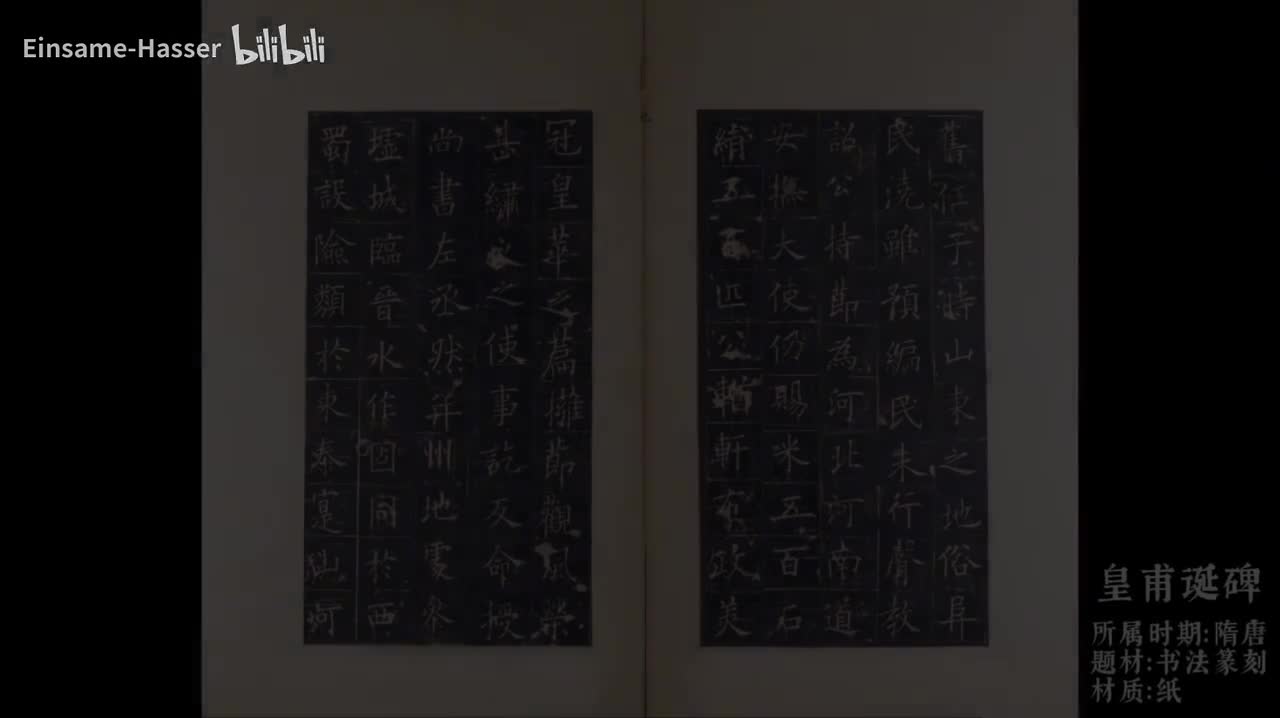 Einsame-Hasser bilibili
舊任于時山東之地俗阜
民澆雖預編民未行聲教
詔公持節為河北河南道
安撫大使仍賜米五百石
絹五百匹公輶軒布政美
冠皇華之篇擁節觀風榮
甚繡衣之使事訖反命授
尚書左丞然并州地處參
墟城臨晉水作固同於西
蜀設險類於東秦寔山河
皇甫诞碑
所属时期:隋唐
题材:书法篆刻
材质:纸